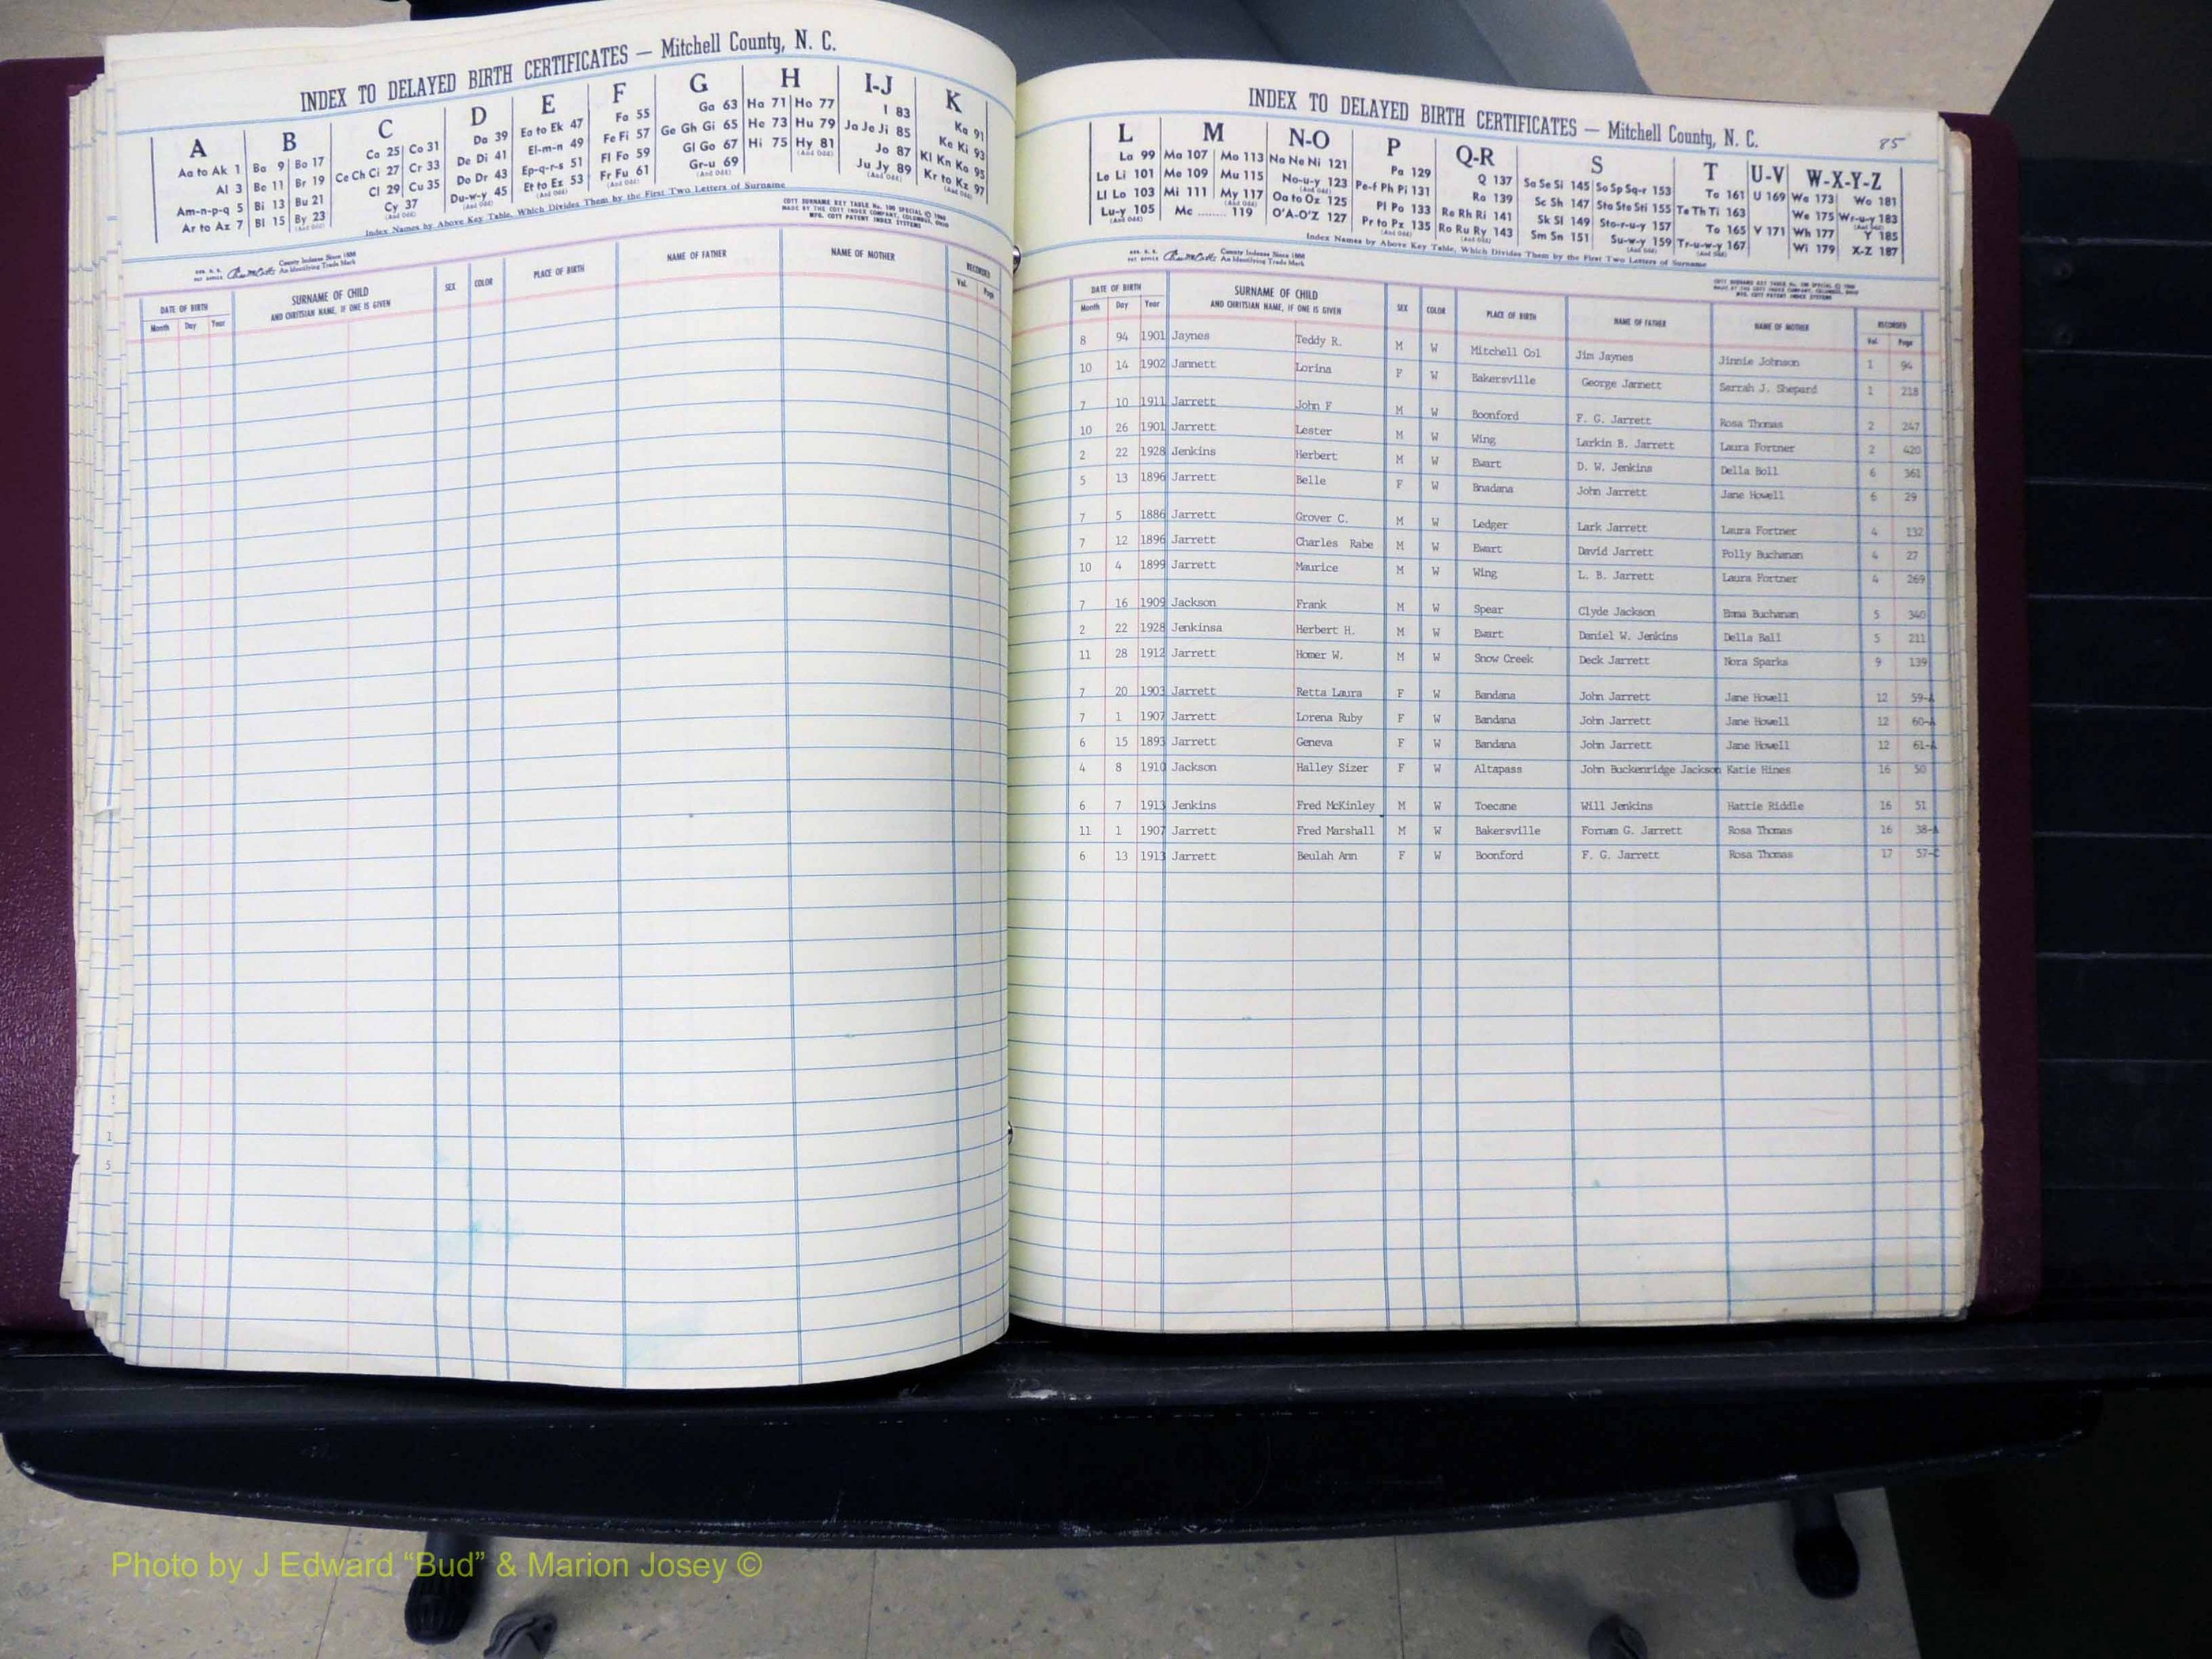 INDEX TO DELAYED BIRTH CERTIFICATES — Mitchell County, N. C.
A B C D E F G H I-J K
Aa to Ak 1 Ba 9 Bo 17 Ca 25 Co 31 Da 39 Ea to Ek 47 Fa 55 Ga 63 Ha 71 Ho 77 I 83 Ka 91
Al 3 Be 11 Br 19 Ce Ch Ci 27 Cr 33 De Di 41 El-m-n 49 Fe Fi 57 Ge Gh Gi 65 He 73 Hu 79 Ja Je Ji 85 Ke Ki 93
Am-n-p-q 5 Bi 13 Bu 21 Cl 29 Cu 35 Do Dr 43 Ep-q-r-s 51 Fl Fo 59 Gl Go 67 Hi 75 Hy 81 Jo 87 Kl Kn Ko 95
Ar to Az 7 Bl 15 By 23 Cy 37 Du-w-y 45 Et to Ez 53 Fr Fu 61 Gr-u 69 Ju Jy 89 Kr to Kz 97
Index Names by Above Key Table, Which Divides Them by the First Two Letters of Surname
COTT SURNAME KEY TABLE No. 100 SPECIAL © 1966
MADE BY THE COTT INDEX COMPANY, COLUMBUS, OHIO
MFG. COTT PATENT INDEX SYSTEMS
County Indexes Since 1888
An Identifying Trade Mark
DATE OF BIRTH SURNAME OF CHILD SEX COLOR PLACE OF BIRTH NAME OF FATHER NAME OF MOTHER RECORDED
Month Day Year AND CHRITSIAN NAME, IF ONE IS GIVEN Vol. Page
INDEX TO DELAYED BIRTH CERTIFICATES — Mitchell County, N. C.
85
L M N-O P Q-R S T U-V W-X-Y-Z
La 99 Ma 107 Mo 113 Na Ne Ni 121 Pa 129 Q 137 Sa Se Si 145 So Sp Sq-r 153 Ta 161 U 169 Wa 173 Wo 181
Le Li 101 Me 109 Mu 115 No-u-y 123 Pe-f Ph Pi 131 Ra 139 Sc Sh 147 Sta Ste Sti 155 Te Th Ti 163 We 175 Wr-u-y 183
Ll Lo 103 Mi 111 My 117 Oa to Oz 125 Pl Po 133 Re Rh Ri 141 Sk Sl 149 Sto-r-u-y 157 To 165 V 171 Wh 177 Y 185
Lu-y 105 Mc ........ 119 O'A-O'Z 127 Pr to Pz 135 Ro Ru Ry 143 Sm Sn 151 Su-w-y 159 Tr-u-w-y 167 Wi 179 X-Z 187
Index Names by Above Key Table, Which Divides Them by the First Two Letters of Surname
County Indexes Since 1888
An Identifying Trade Mark
DATE OF BIRTH SURNAME OF CHILD SEX COLOR PLACE OF BIRTH NAME OF FATHER NAME OF MOTHER RECORDED
Month Day Year AND CHRITSIAN NAME, IF ONE IS GIVEN Vol. Page
8 94 1901 Jaynes Teddy R. M W Mitchell Col Jim Jaynes Jinnie Johnson 1 94
10 14 1902 Jannett Lorina F W Bakersville George Jannett Sarrah J. Shepard 1 218
7 10 1911 Jarrett John F M W Boonford F. G. Jarrett Rosa Thomas 2 247
10 26 1901 Jarrett Lester M W Wing Larkin B. Jarrett Laura Fortner 2 420
2 22 1928 Jenkins Herbert M W Ewart D. W. Jenkins Della Boll 6 361
5 13 1896 Jarrett Belle F W Bnadana John Jarrett Jane Howell 6 29
7 5 1886 Jarrett Grover C. M W Ledger Lark Jarrett Laura Fortner 4 132
7 12 1896 Jarrett Charles Rabe M W Ewart David Jarrett Polly Buchanan 4 27
10 4 1899 Jarrett Maurice M W Wing L. B. Jarrett Laura Fortner 4 269
7 16 1909 Jackson Frank M W Spear Clyde Jackson Emma Buchanan 5 340
2 22 1928 Jenkinsa Herbert H. M W Ewart Daniel W. Jenkins Della Ball 5 211
11 28 1912 Jarrett Homer W. M W Snow Creek Deck Jarrett Nora Sparks 9 139
7 20 1903 Jarrett Retta Laura F W Bandana John Jarrett Jane Howell 12 59-A
7 1 1907 Jarrett Lorena Ruby F W Bandana John Jarrett Jane Howell 12 60-A
6 15 1893 Jarrett Geneva F W Bandana John Jarrett Jane Howell 12 61-A
4 8 1910 Jackson Halley Sizer F W Altapass John Buckenridge Jackson Katie Hines 16 50
6 7 1913 Jenkins Fred McKinley M W Toecane Will Jenkins Hattie Riddle 16 51
11 1 1907 Jarrett Fred Marshall M W Bakersville Fornam G. Jarrett Rosa Thomas 16 38-A
6 13 1913 Jarrett Beulah Ann F W Boonford F. G. Jarrett Rosa Thomas 17 57-C
Photo by J Edward “Bud” & Marion Josey ©